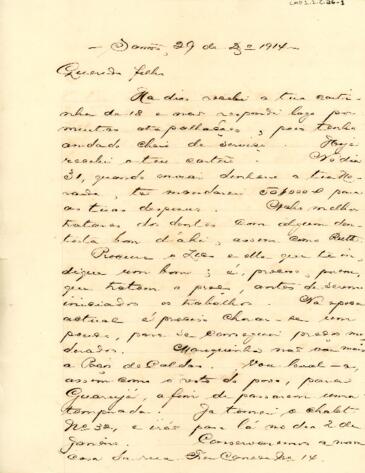 Santos, 29 de 3º 1914
Querido filho
Ha dias recebi a tua carti-
nha de 18 e não respondi logo por
muitas atrapalhações, pois tenho
andado cheio de serviço. Hoje
recebi o teu cartão. No dia
31, quando enviar dinheiro a tia
, te mandarei 50$000 para
as tuas despesas. melhor
tratares dos dentes com algum den-
tista bom d'ahi, assim como Ruth.
Procure o e elle que te in-
dique um bom; é preciso, porem,
que tratem o preço, antes de serem
iniciados os trabalhos. Na epoca
actual é preciso chorar-se um
pouco, para se conseguir preços mo-
derados. não vae mais
a Poços de Caldas. Vou leval-a,
assim como o resto do povo, para
Guarujá, a fim de passarem uma
temporada. Ja tomei o chalet
Nº 32, e irão para lá no dia 2 de
Conservaremos a nossa
casa da rua Frei Caneca Nº 14